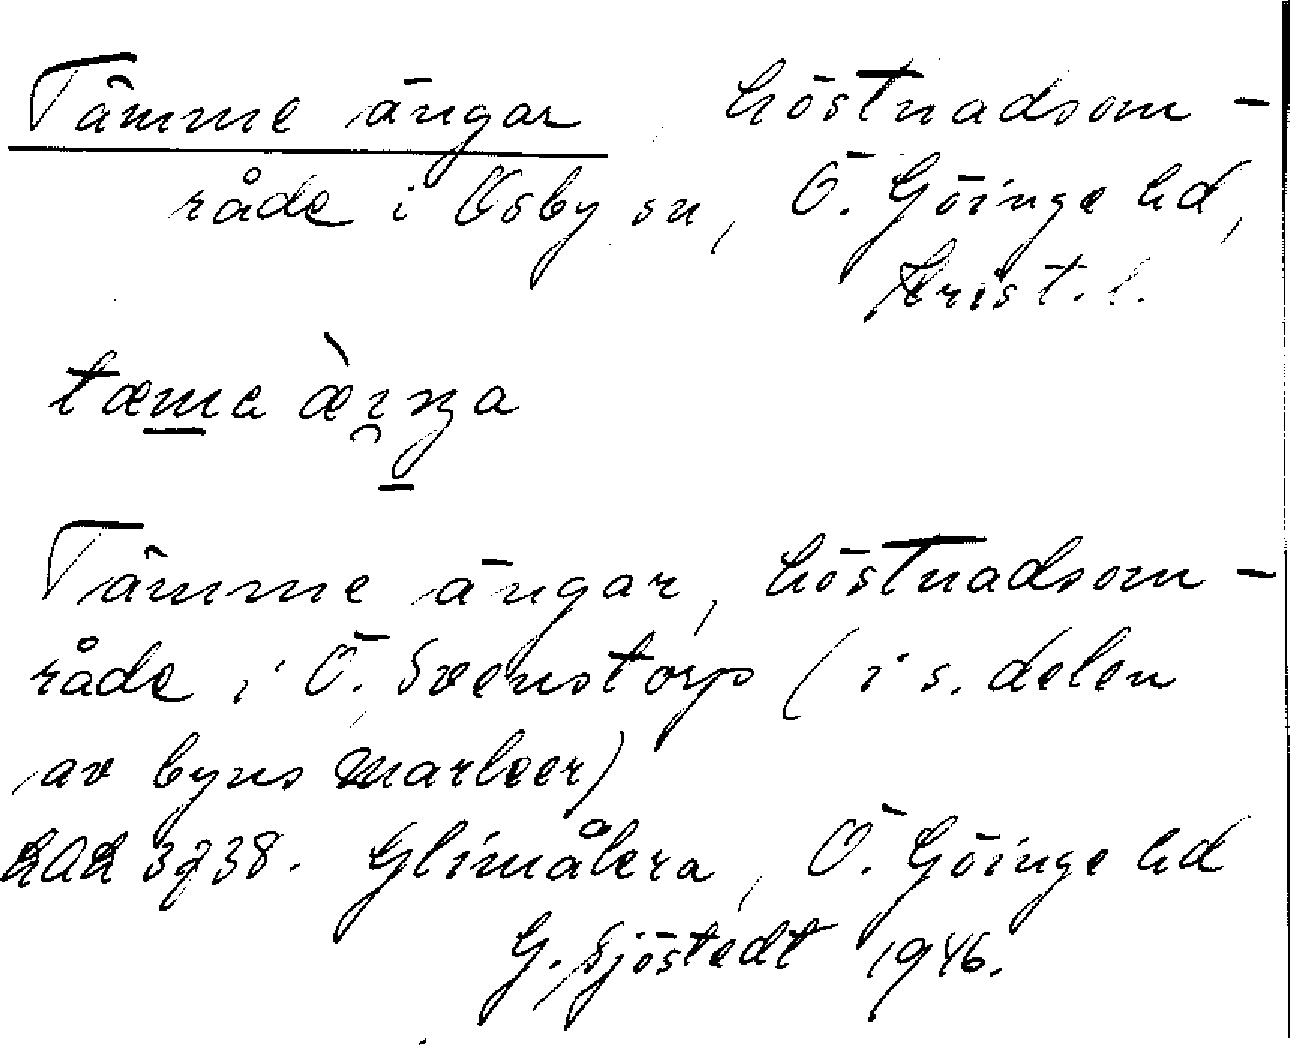 Tämme ängar, höstnadsom-
råde i Osby sn, Ö. Göinge hd,
Krist. l.
tæma
Tämme ängar, höstnadsom-
råde i Ö. Svenstorp (i s. delen
av byns marker)
3738. Glimåkra, Ö. Göinge hd
G. Sjöstedt 1946.